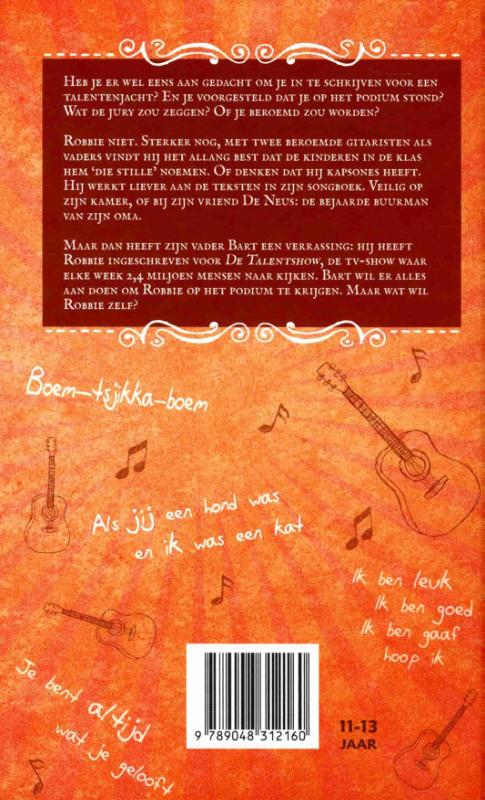 Heb je er wel eens aan gedacht om je in te schrijven voor een
talentenjacht? En je voorgesteld dat je op het podium stond?
Wat de jury zou zeggen? Of je beroemd zou worden?
Robbie niet. Sterker nog, met twee beroemde gitaristen als
vaders vindt hij het allang best dat de kinderen in de klas
hem ‘die stille’ noemen. Of denken dat hij kapsones heeft.
Hij werkt liever aan de teksten in zijn songboek. Veilig op
zijn kamer, of bij zijn vriend De Neus: de bejaarde buurman
van zijn oma.
Maar dan heeft zijn vader Bart een verrassing: hij heeft
Robbie ingeschreven voor De Talentshow, de tv-show waar
elke week 2,4 miljoen mensen naar kijken. Bart wil er alles
aan doen om Robbie op het podium te krijgen. Maar wat wil
Robbie zelf?
Boem-tsjikka-boem
Als jij een hond was
en ik was een kat
Ik ben leuk
Ik ben goed
Ik ben gaaf
hoop ik
Je bent altijd
wat je gelooft
9 789048 312160
11-13
JAAR